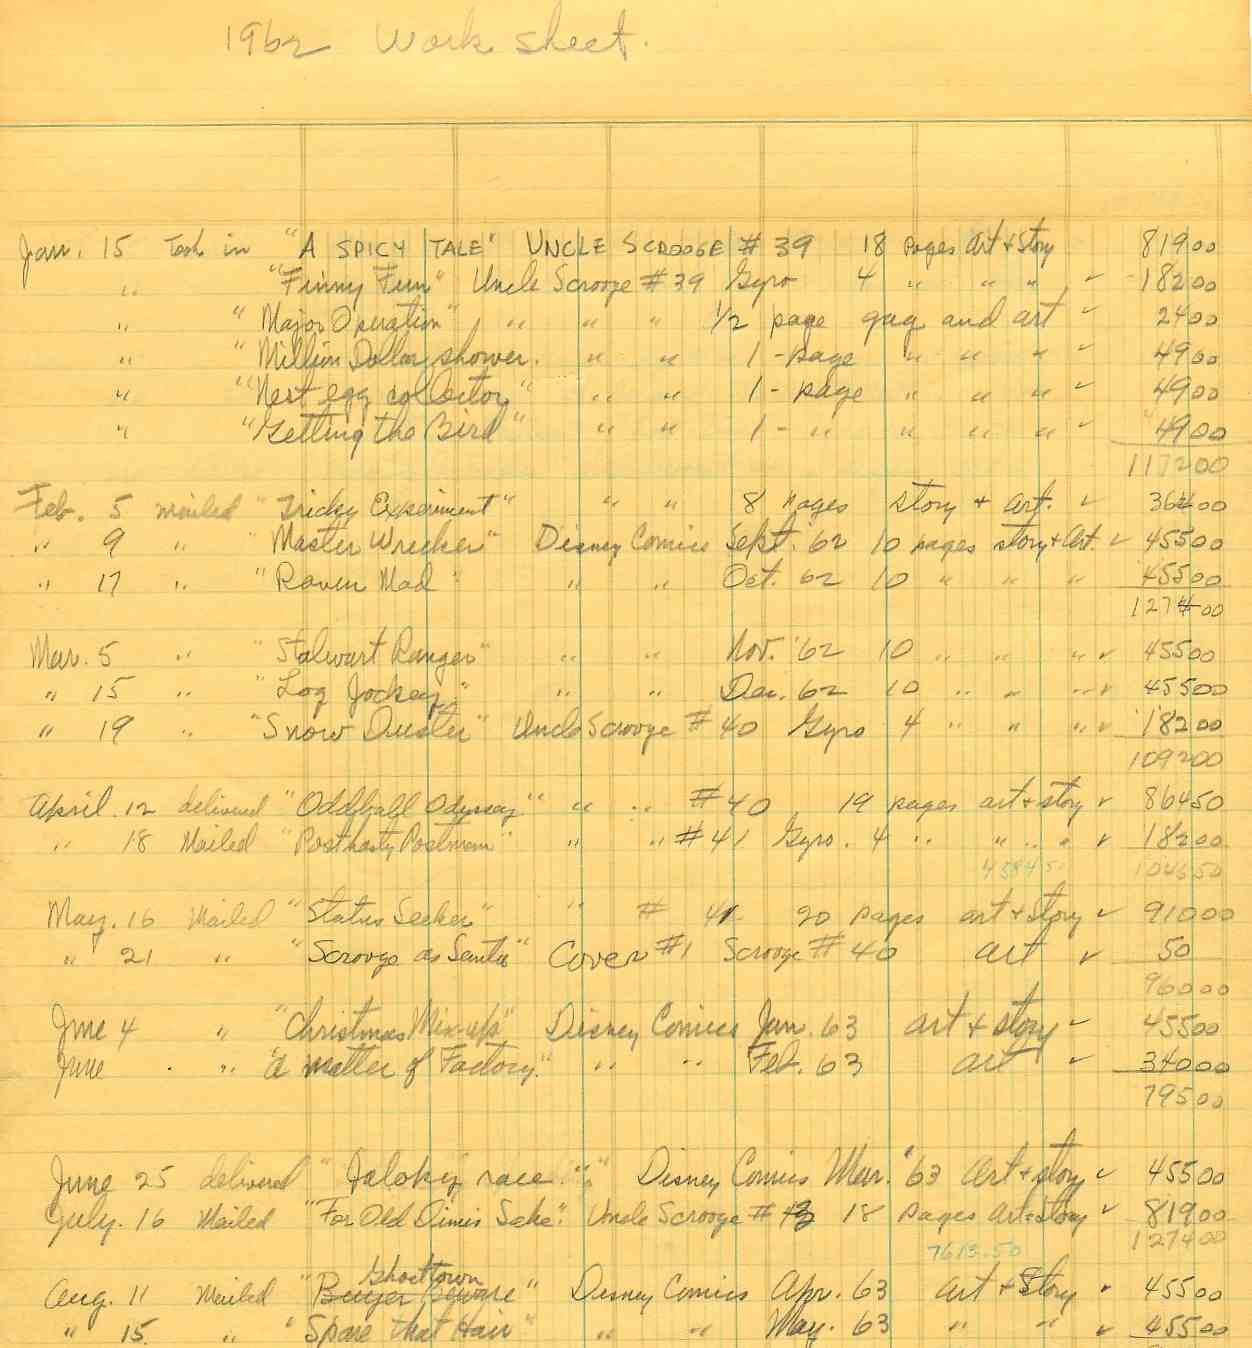 1962 Work sheet.
Jan. 15 Took in "A SPICY TALE" UNCLE SCROOGE # 39 18 pages Art + Story 819 00
" "Finny Fun" Uncle Scrooge # 39 Gyro 4 " " " ✓ 182 00
" "Major Operation" " " " 1/2 page gag and art ✓ 24 00
" "Million Dollar shower. " " 1 - page " " " ✓ 49 00
" "Nest egg collector" " " 1 - page " " " ✓ 49 00
" "Getting the Bird" " " 1 - " " " " ✓ 49 00
1172 00
Feb. 5 mailed "Tricky Experiment" " " 8 pages story + art. ✓ 364 00
" 9 " "Master Wrecker" Disney Comics Sept. '62 10 pages story + Art. ✓ 455 00
" 17 " "Raven Mad" " " Oct. '62 10 " " " 455 00
1274 00
Mar. 5 " "Stalwart Ranger" " " Nov. '62 10 " " " ✓ 455 00
" 15 " "Log Jockey" " " Dec. 62 10 " " " ✓ 455 00
" 19 " "Snow Duster" Uncle Scrooge # 40 Gyro 4 " " " ✓ 182 00
1092 00
April. 12 delivered "Oddball Odyssey" " " # 40 19 pages art + story ✓ 864 50
" 18 Mailed "Posthasty Postman" " " # 41 Gyro. 4 " " " " ✓ 182 00
4584 5 1046 50
May. 16 Mailed "Status Seeker" " # 41 20 pages art + story ✓ 910 00
" 21 " "Scrooge as Santa" Cover #1 Scrooge # 40 art ✓ 50
960 00
June 4 " "Christmas Mix-up" Disney Comics Jan. 63 art + story ✓ 455 00
June . " "a matter of Factory." " " Feb. 63 art ✓ 340 00
795 00
June 25 delivered "Jaloky race." " Disney Comics Mar. '63 Art + story ✓ 455 00
July. 16 Mailed "For Old Dime's Sake". Uncle Scrooge # 18 pages Art + Story ✓ 819 00
7613.50 1274 00
Ghosttown
Aug. 11 Mailed "Buyer Beware" Disney Comics Apr. 63 art + Story 455 00
" 15. " "Spare that Hair" " " May. 63 " " ✓ 455 00